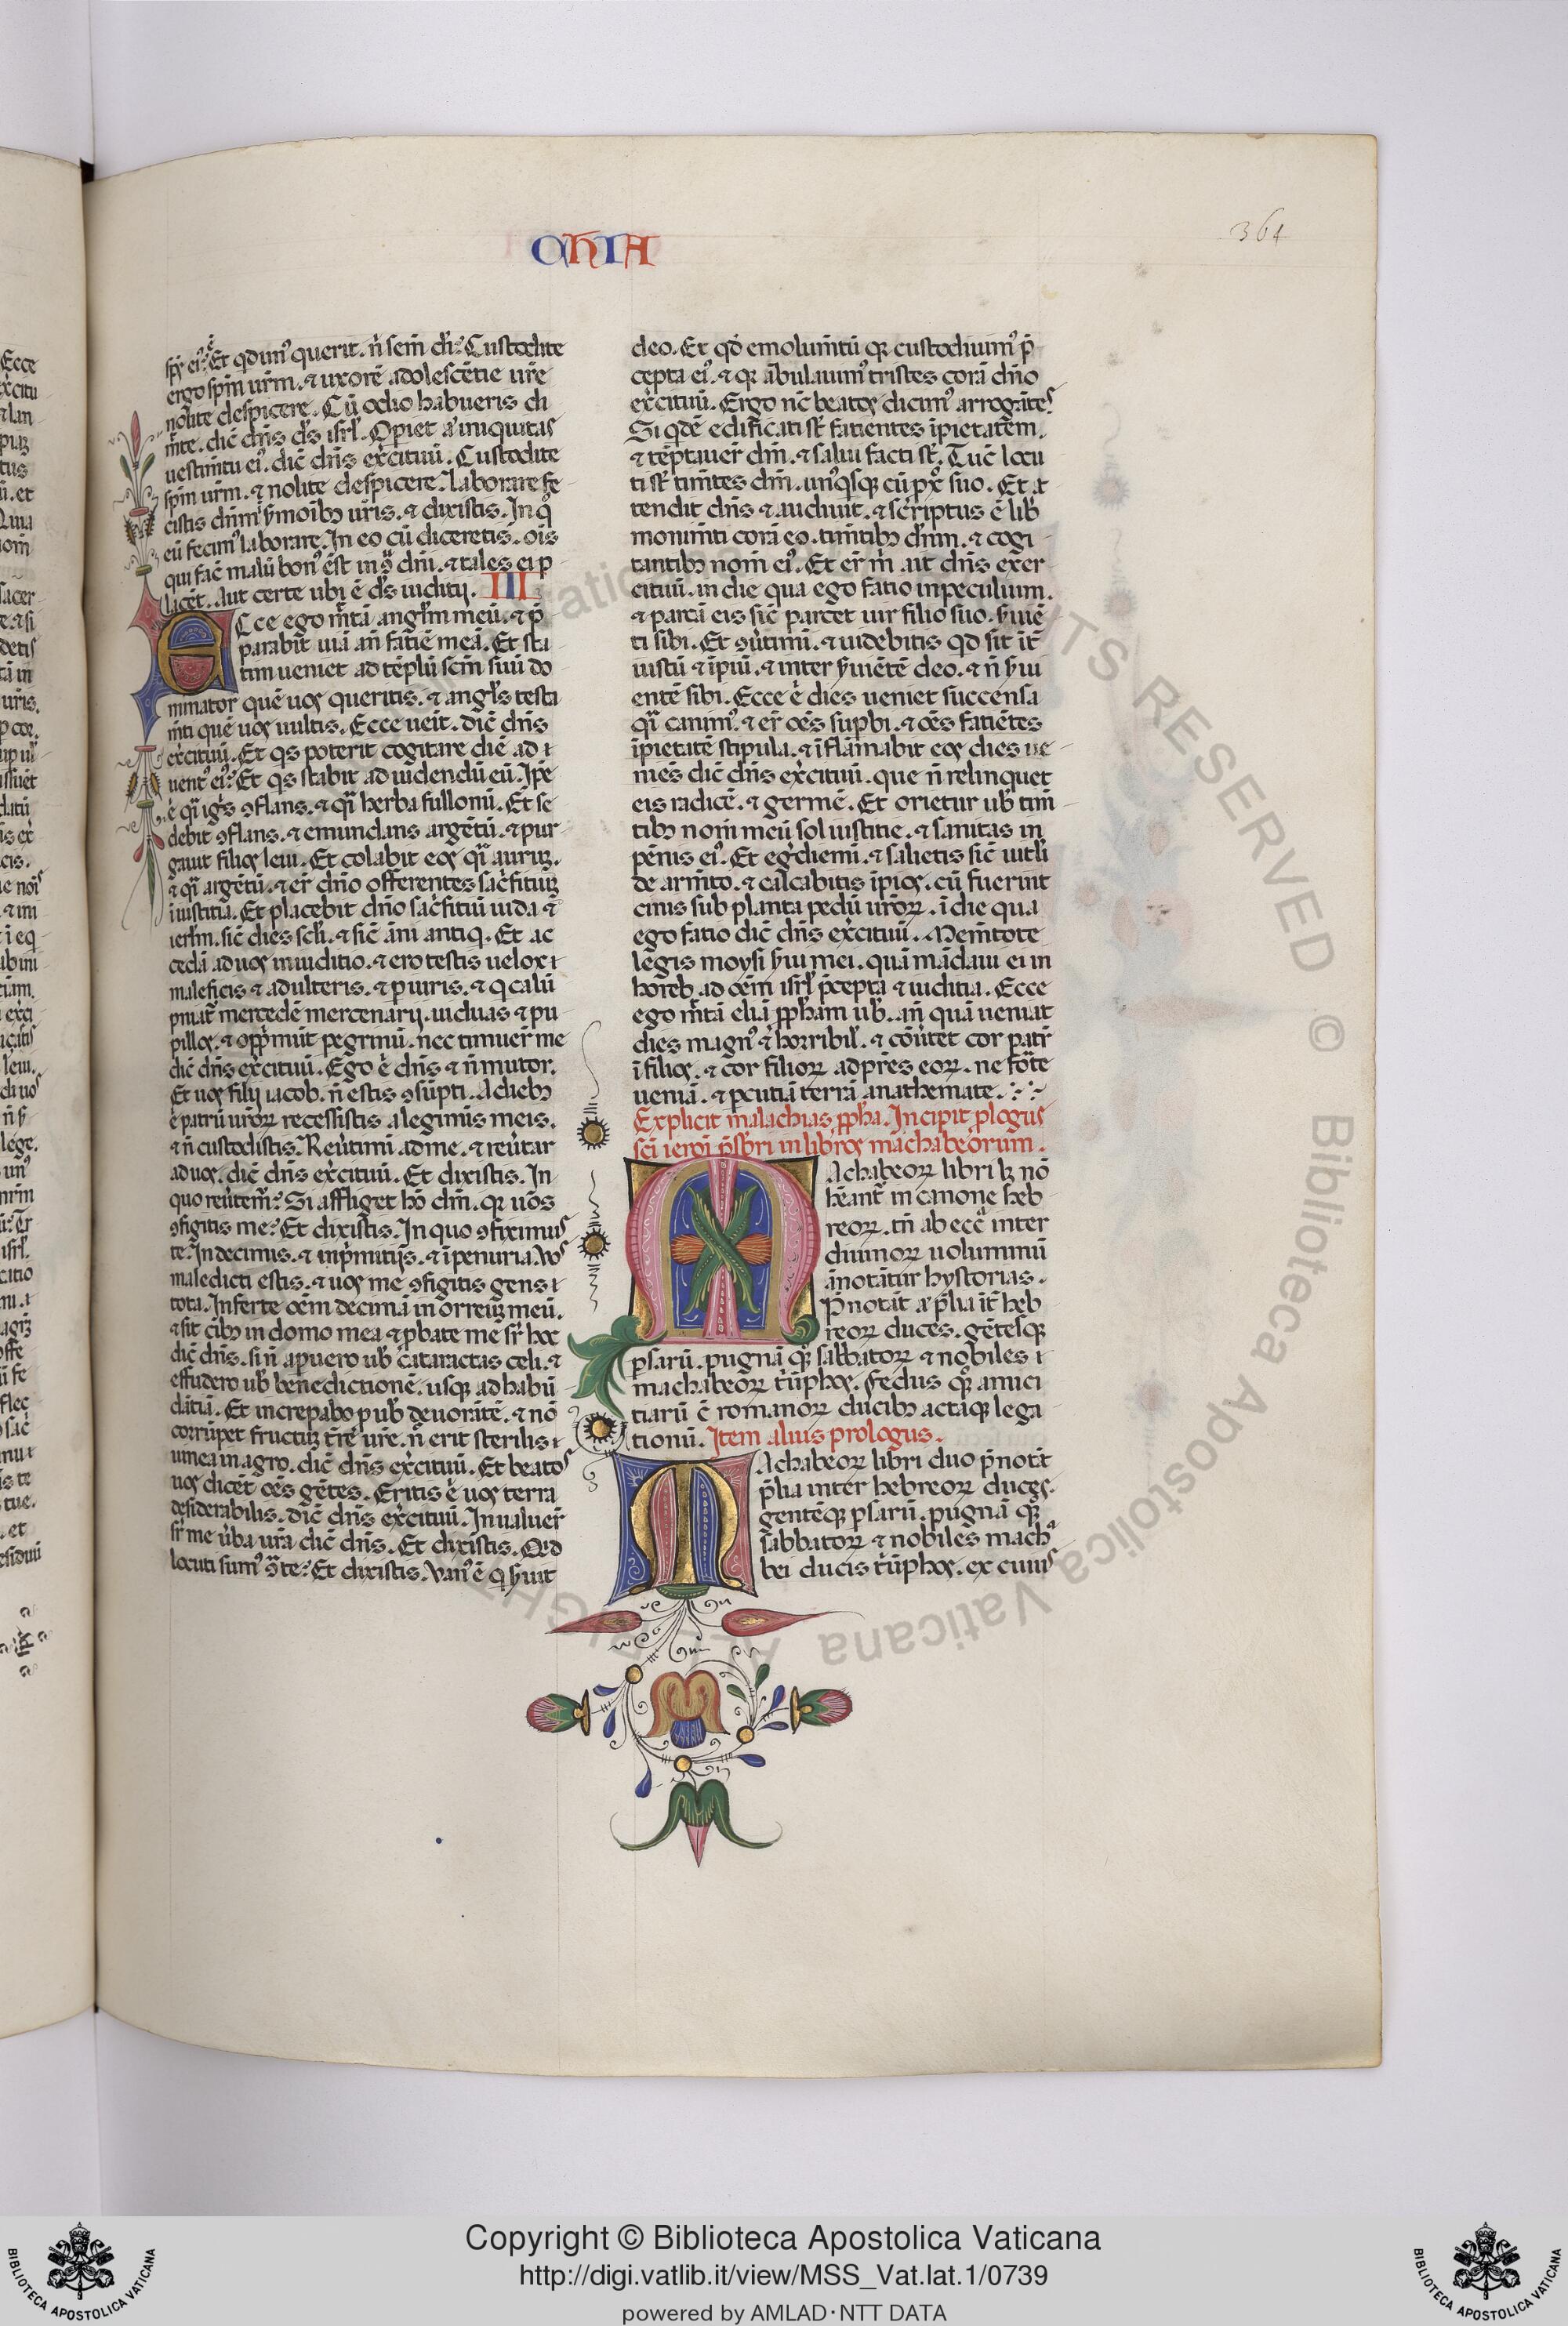 CHIA
364
sp̄s ei᷒? Et qd unu᷒ querit. n̄ sem̄ di? Custodite
ergo sp̄m vr̄m. ⁊ uxorē adolescētie ur̄e
nolite despicere. Cū odio habueris di
m̄te. dic̄ dn̄s ds̄ isrl̄. Opiet a᷒ iniquitas
uestim̄tu ei᷒. dic̄ dn̄s ex̄cituū. Custodite
sp̄m ur̄m. ⁊ nolite despicere. laborare fe
cistis dn̄m ī s̄moībꝫ ur̄is. ⁊ dixistis. In q̊
eū fecim᷒ laborare. In eo cū diceretis. oīs
qui fac̄ malū bon᷒ est in ꝯspectu dn̄i. ⁊ tales ei p
lacēt. Aut certe ubi ē ds̄ iuditij. III
Ecce ego m̄tā angl̄m meū. ⁊ p̄
parabit uiā an̄ fatiē meā. Et sta
tim ueniet ad tēplū sc̄m suū do
minator quē uos queritis. ⁊ angl̄s testa
m̄ti quē uos uultis. Ecce ueīt. dic̄ dn̄s
ex̄cituū. Et qs poterit cogitare diē ad ī
uent᷒ ei᷒? Et qs stabit ad uidendū eū. Ip̄e
ē q̄i igīs ꝯflans. ⁊ q̄i herba fullonū. Et se
debit ꝯflans. ⁊ emundans argētū. ⁊ pur
gauit filios leui. Et colabit eos q̄i auruꝫ.
⁊ q̄i argētū. ⁊ er̄ dn̄o offerentes sac̄fitiuꝫ
ī iustitia. Et placebit dn̄o sac̄fitiū iuda ⁊
ierl̄m. sic̄ dies sc̄li. ⁊ sic̄ āni antiq̄. Et ac
cedā ad uos in iuditio. ⁊ ero testis uelox
maleficis ⁊ adulteris. ⁊ ꝑiuris. ⁊ q calū
pniāt̄ mercedē mercenarij. uiduas ⁊ pu
pillos. ⁊ opp̄mūt pegrinū. nec timuer̄ me
dic̄ dn̄s ex̄cituū. Ego ē dn̄s ⁊ n̄ mutor.
Et uos filij iacob. n̄ estis ꝯsūpti. A diebꝫ
ē patrū ur̄oꝝ recessistis a legitimis meis.
⁊ n̄ custodistis. Reūtimī ad me. ⁊ reūtar
ad uos. dic̄ dn̄s ex̄cituū. Et dixistis. In
quo reūtem̄? Si affliget hō dm̄. qꝛ uōs
ꝯfigitis me? Et dixistis. In quo ꝯfiximus
te. In decimis. ⁊ in p̄mitijs. ⁊ ī penuria. Vos
maledicti estis. ⁊ uos me ꝯfigitis gens
tota. Inferte oēm decimā in orreuꝫ meū.
⁊ sit cibꝫ in domo mea ⁊ ꝓbate me sr̄ hoc
dic̄ dn̄s. si n̄ apuero ub̄ cataractas celi. ⁊
effudero ub̄ benedictionē. usqꝫ ad habū
dātiā. Et increpabo ꝓ ub̄ deuorātē. ⁊ nō
corrūpet fructuꝫ tr̄e ur̄e. n̄ erit sterilis
uinea in agro. dic̄ dn̄s ex̄cituū. Et beatos
uos dicēt oēs gētes. Eritis ē uos terra
desiderabilis. dic̄ dn̄s ex̄cituū. Inualuer̄
sr̄ me ūba ur̄a dic̄ dn̄s. Et dixistis. Qd
locuti sum᷒ ꝯ̄ te? Et dixistis. Van᷒ ē q s̄uit
deo. Et qd̄ emolum̄tū qꝛ custodiuim᷒ p̄
cepta ei᷒. ⁊ qꝛ ābulauim᷒ tristes corā dn̄o
ex̄cituū. Ergo nc̄ beatos dicim᷒ arrogātes.
Si qdē edificati st̄ fatientes īpietatem.
⁊ tēptauer̄ dm̄. ⁊ salui facti st̄. Tūc locu
ti st̄ tim̄tes dm̄. un᷒qsqꝫ cū ꝓx̄ suo. Et at
tendit dn̄s ⁊ audiuit. ⁊ sc̄riptus ē lib̄
monim̄ti corā eo. tim̄tibꝫ dn̄m. ⁊ cogi
tantibꝫ nom̄ ei᷒. Et er̄ m̄ ait dn̄s exer
cituū. in die qua ego fatio in peculium.
⁊ parcā eis sic̄ parcet uir filio suo. s̄uiē
ti sibi. Et ꝯūtimī. ⁊ uidebitis qd sit īt̄
iustū ⁊ īpiū. ⁊ inter s̄uiētē deo. ⁊ n̄ s̄ui
entē sibi. Ecce ē dies ueniet succensa
q̄i camin᷒. ⁊ er̄ oēs supbi. ⁊ oēs fatiētes
īpietatē stipula. ⁊ īflāmabit eos dies ue
niēs dic̄ dn̄s ex̄cituū. que n̄ relinquet
eis radicē. ⁊ germē. Et orietur ub̄ tim̄
tibꝫ nom̄ meū sol iustitie. ⁊ sanitas in
pēnis ei᷒. Et eḡdiemī. ⁊ salietis sic̄ uitli
de arm̄to. ⁊ calcabitis īpios. cū fuerint
cinis sub planta pedū ur̄oꝝ. ī die qua
ego fatio dic̄ dn̄s ex̄cituū. Mem̄tote
legis moysi s̄ui mei. quā mādaui ei in
horeb. ad oēm isrl̄ p̄cepta ⁊ iuditia. Ecce
ego m̄tā eliā ꝓpham ub̄. an̄ quā ueniat
dies magn᷒ ⁊ horribil̄. ⁊ cōūtet cor patr̄
ī filios. ⁊ cor filioꝝ ad pr̄es eoꝝ. ne fōte
ueniā. ⁊ ꝑcutiā terrā anathemate.
Explicit malachias ꝓpha. Incipit plogus
sc̄i ieroī p̄sbri in libros machabeorum.
Machabeoꝝ libri lꝫ nō
hēant̄ in canone heb
reoꝝ. tn̄ ab ecc̄a inter
diuinoꝝ uoluminū
ānotātur hystorias.
P̄notāt a᷒ p̄lia īt̄ heb
reoꝝ duces. gētesqꝫ
ꝑsarū. pugnā qꝫ sabbatoꝝ ⁊ nobiles
machabeoꝝ t̄ūphos. fedus qꝫ amici
tiarū ē romanoꝝ ducibꝫ actāqꝫ lega
tionū. Item alius prologus.
Machabeoꝝ libri duo p̄notāt
p̄lia inter hebreorꝝ duces.
gentēqꝫ ꝑsarū. pugnā qꝫ
sabbatoꝝ ⁊ nobiles mach
bei ducis t̄ūphos. ex cuius
Copyright © Biblioteca Apostolica Vaticana
http://digi.vatlib.it/view/MSS_Vat.lat.1/0739
powered by AMLAD·NTT DATA
BIBLIOTECA APOSTOLICA VATICANA
BIBLIOTECA APOSTOLICA VATICANA